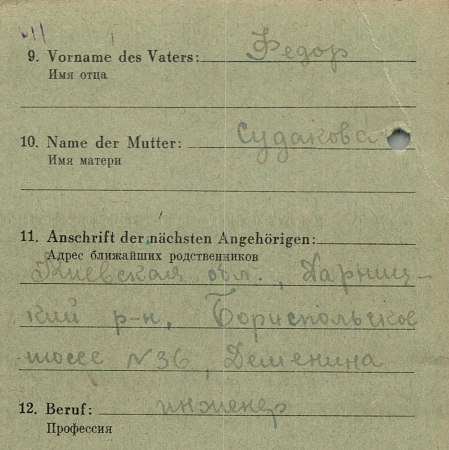 9. Vorname des Vaters: Федор
Имя отца
10. Name der Mutter: Судакова
Имя матери
11. Anschrift der nächsten Angehörigen:
Адрес ближайших родственников
Киевская обл., Дарниц-
кий р-н, Бориспольское
шоссе N36, Деменина
12. Beruf: инженер
Профессия